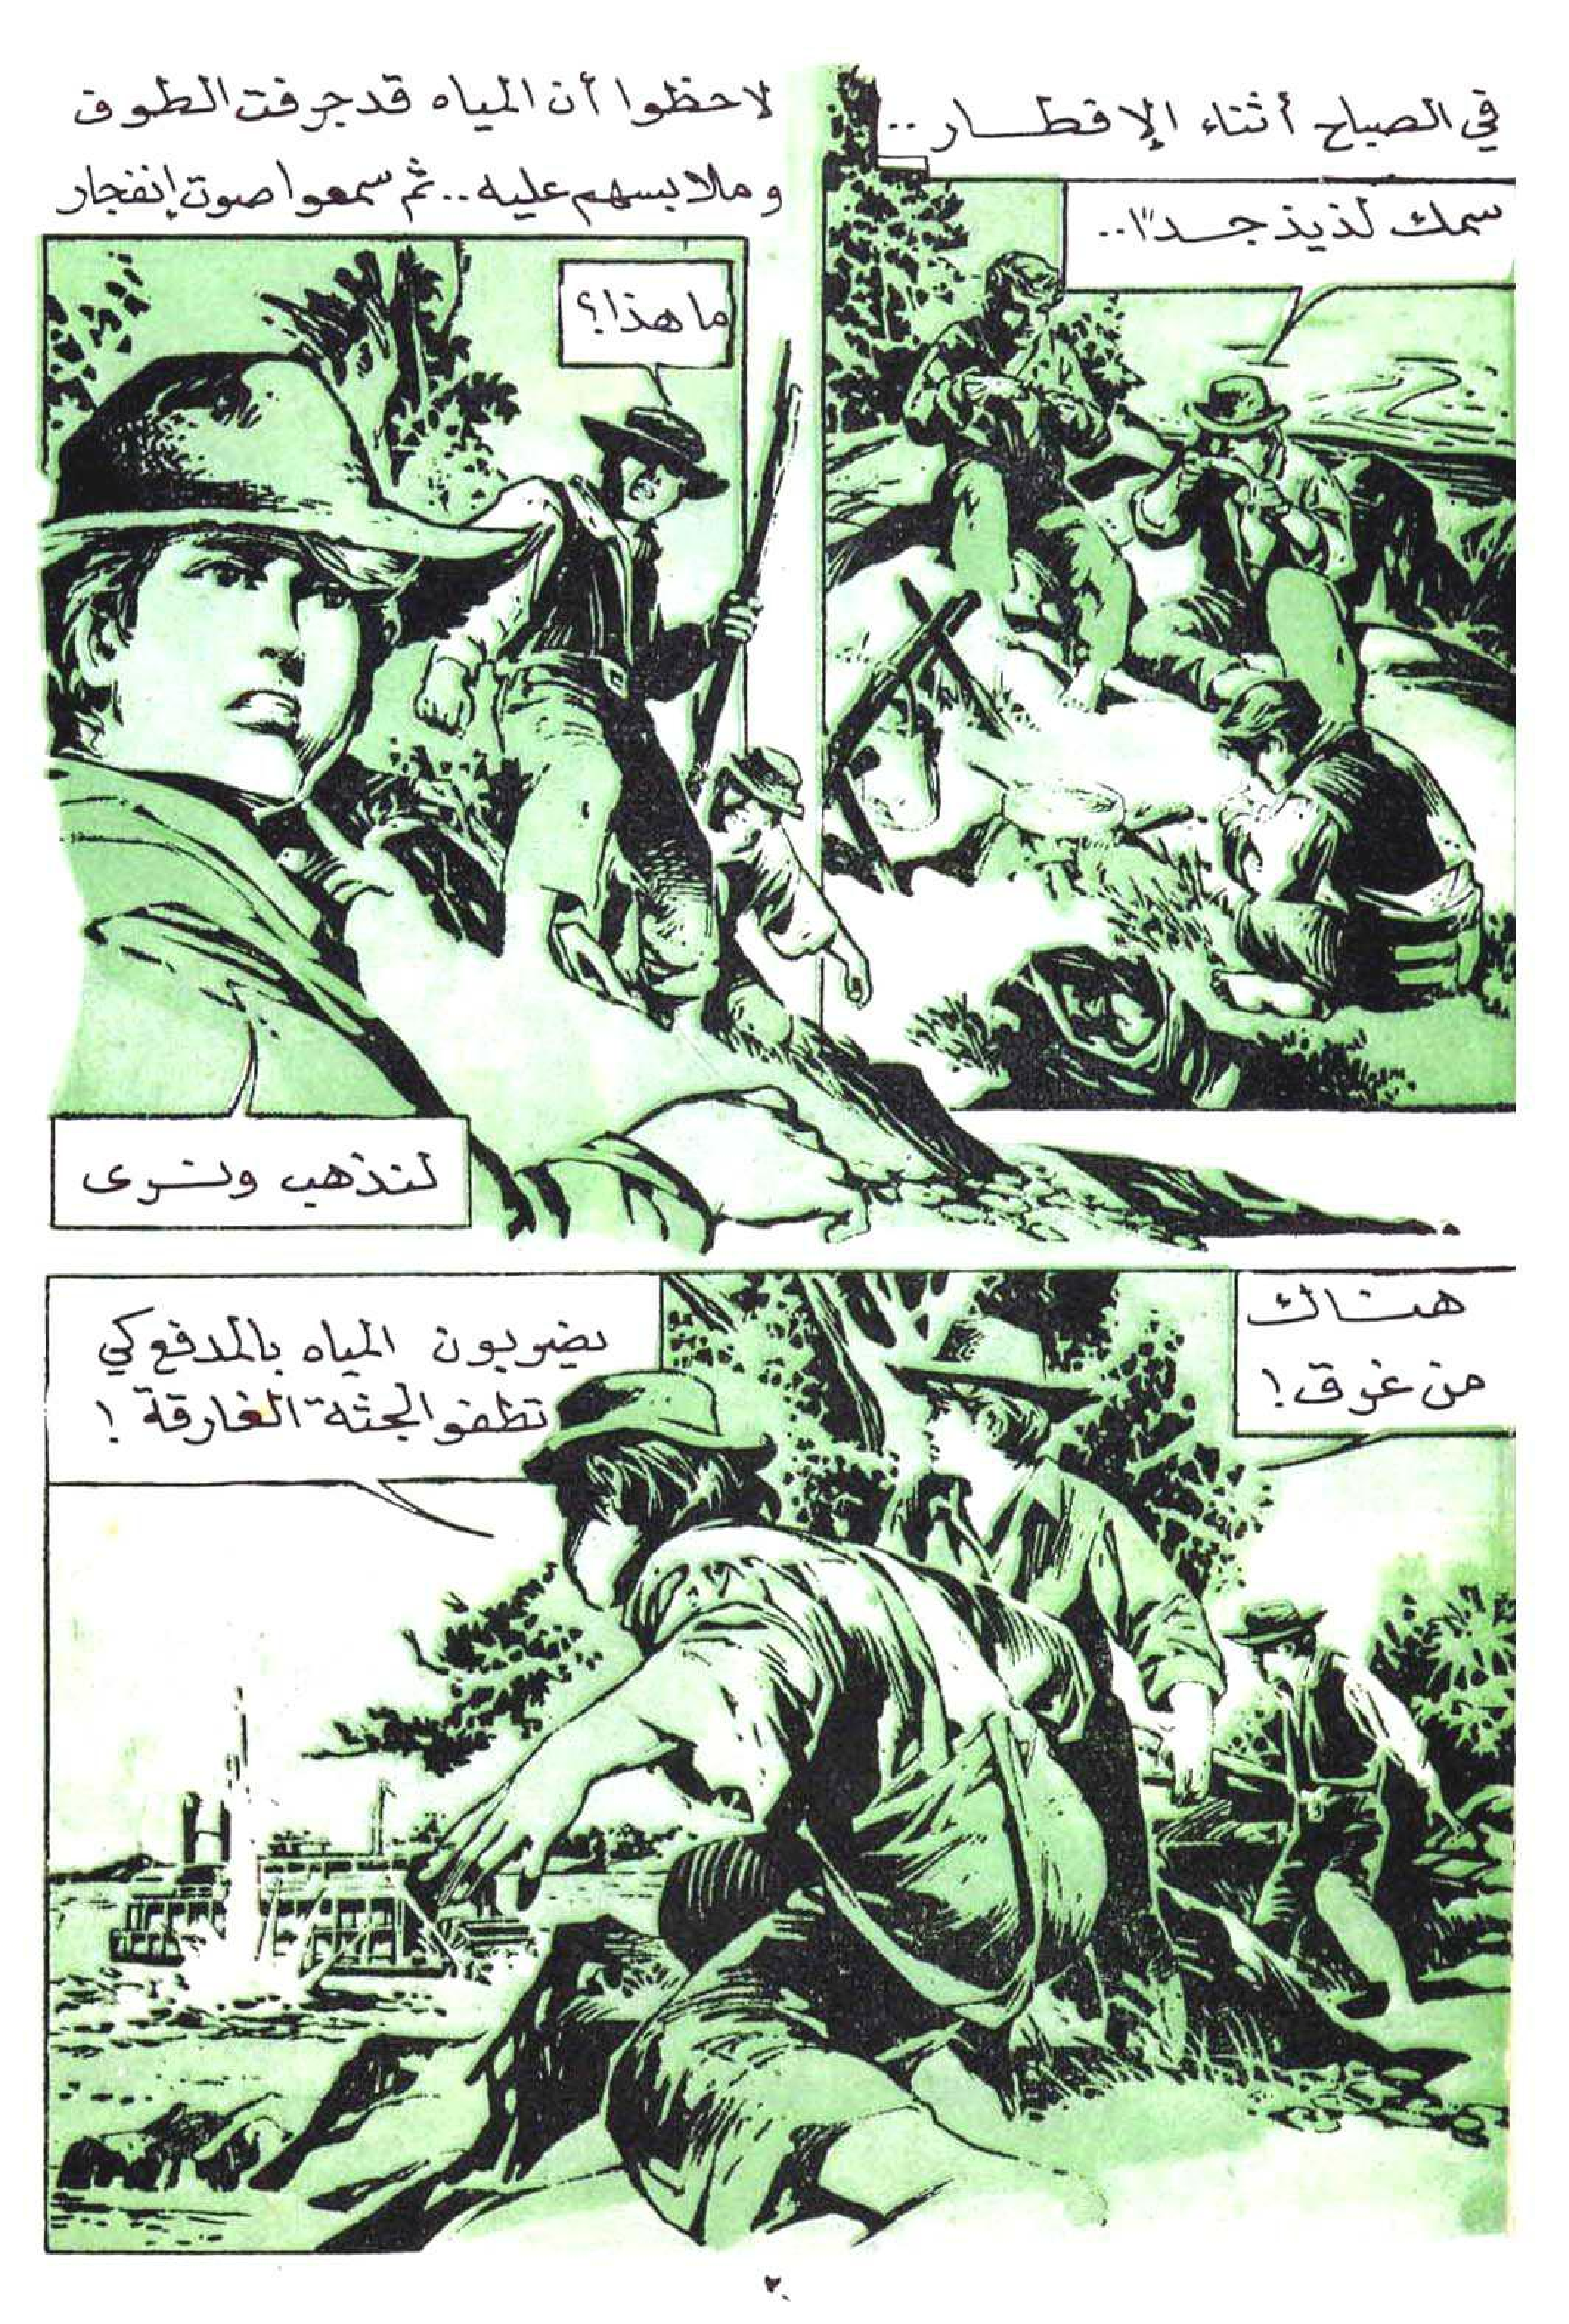 في الصباح أثناء الإفطار..
سمك لذيذ جداً..
لاحظوا أن المياه قد جرفت الطوق
وملابسهم عليه.. ثم سمعوا صوت إنفجار
ما هذا؟
لنذهب ونرى
هناك
من غرق!
يضربون المياه بالمدفع كي
تطفو الجثة الغارقة!